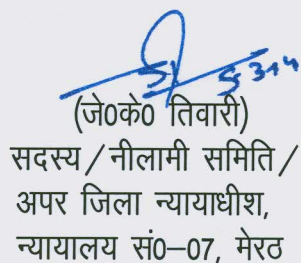 (जे0के0 तिवारी)
सदस्य/नीलामी समिति/
अपर जिला न्यायाधीश,
न्यायालय सं0–07, मेरठ